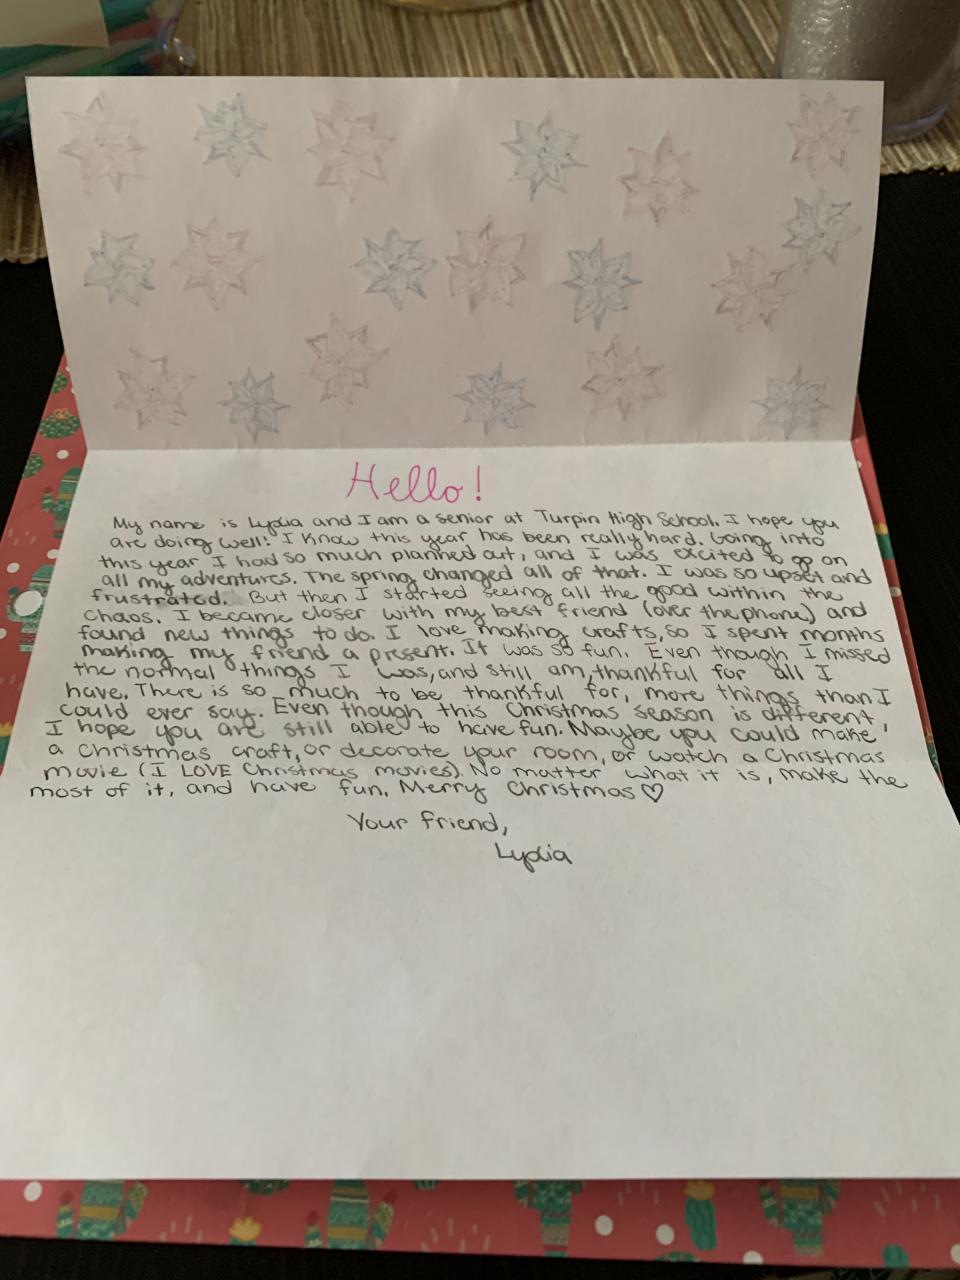 Hello!
My name is Lydia and I am a senior at Turpin High School. I hope you
are doing well! I know this year has been really hard. Going into
this year I had so much planned out, and I was excited to go on
all my adventures. The spring changed all of that. I was so upset and
frustrated. But then I started seeing all the good within the
chaos. I became closer with my best friend (over the phone) and
found new things to do. I love making crafts, so I spent months
making my friend a present. It was so fun. Even though I missed
the normal things I was, and still am, thankful for all I
have. There is so much to be thankful for, more things than I
could ever say. Even though this Christmas season is different,
I hope you are still able to have fun. Maybe you could make
a Christmas craft, or decorate your room, or watch a Christmas
movie (I LOVE Christmas movies). No matter what it is, make the
most of it, and have fun. Merry Christmas ♡
Your friend,
Lydia